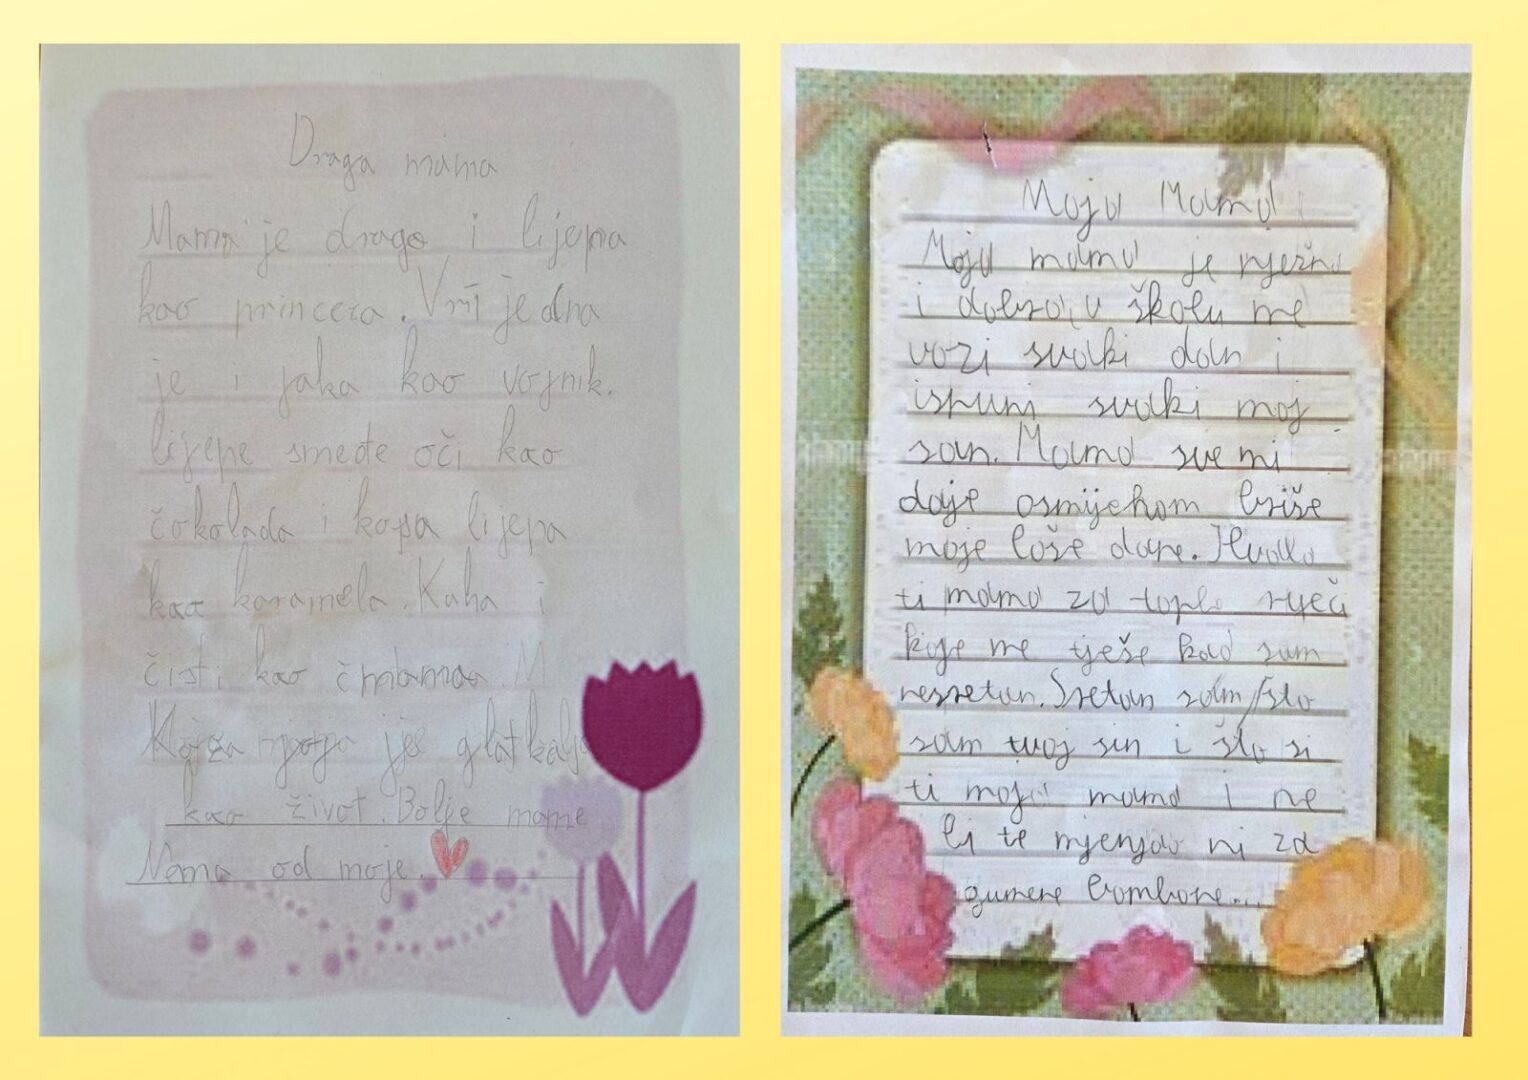 Draga mama
Mama je draga i lijepa
kao princeza. Vrijedna
je i jaka kao vojnik.
lijepe smeđe oči kao
čokolada i kosa lijepa
kao karamela. Kuha i
čisti kao
koža njena je glatka
kao život. Bolje mame
Nema od moje.
Moja Mama
Moja mama je nježna
i dobra, u školu me
vozi svaki dan i
ispuni svaki moj
san. Mama sve mi
daje osmijehom briše
moje loše dane. Hvala
ti mama za tople riječi
koje me tješe kad sam
nesretan. Sretan sam što
sam tvoj sin i što si
ti moja mama i ne
bi te mjenjao ni za
gumene bombone...